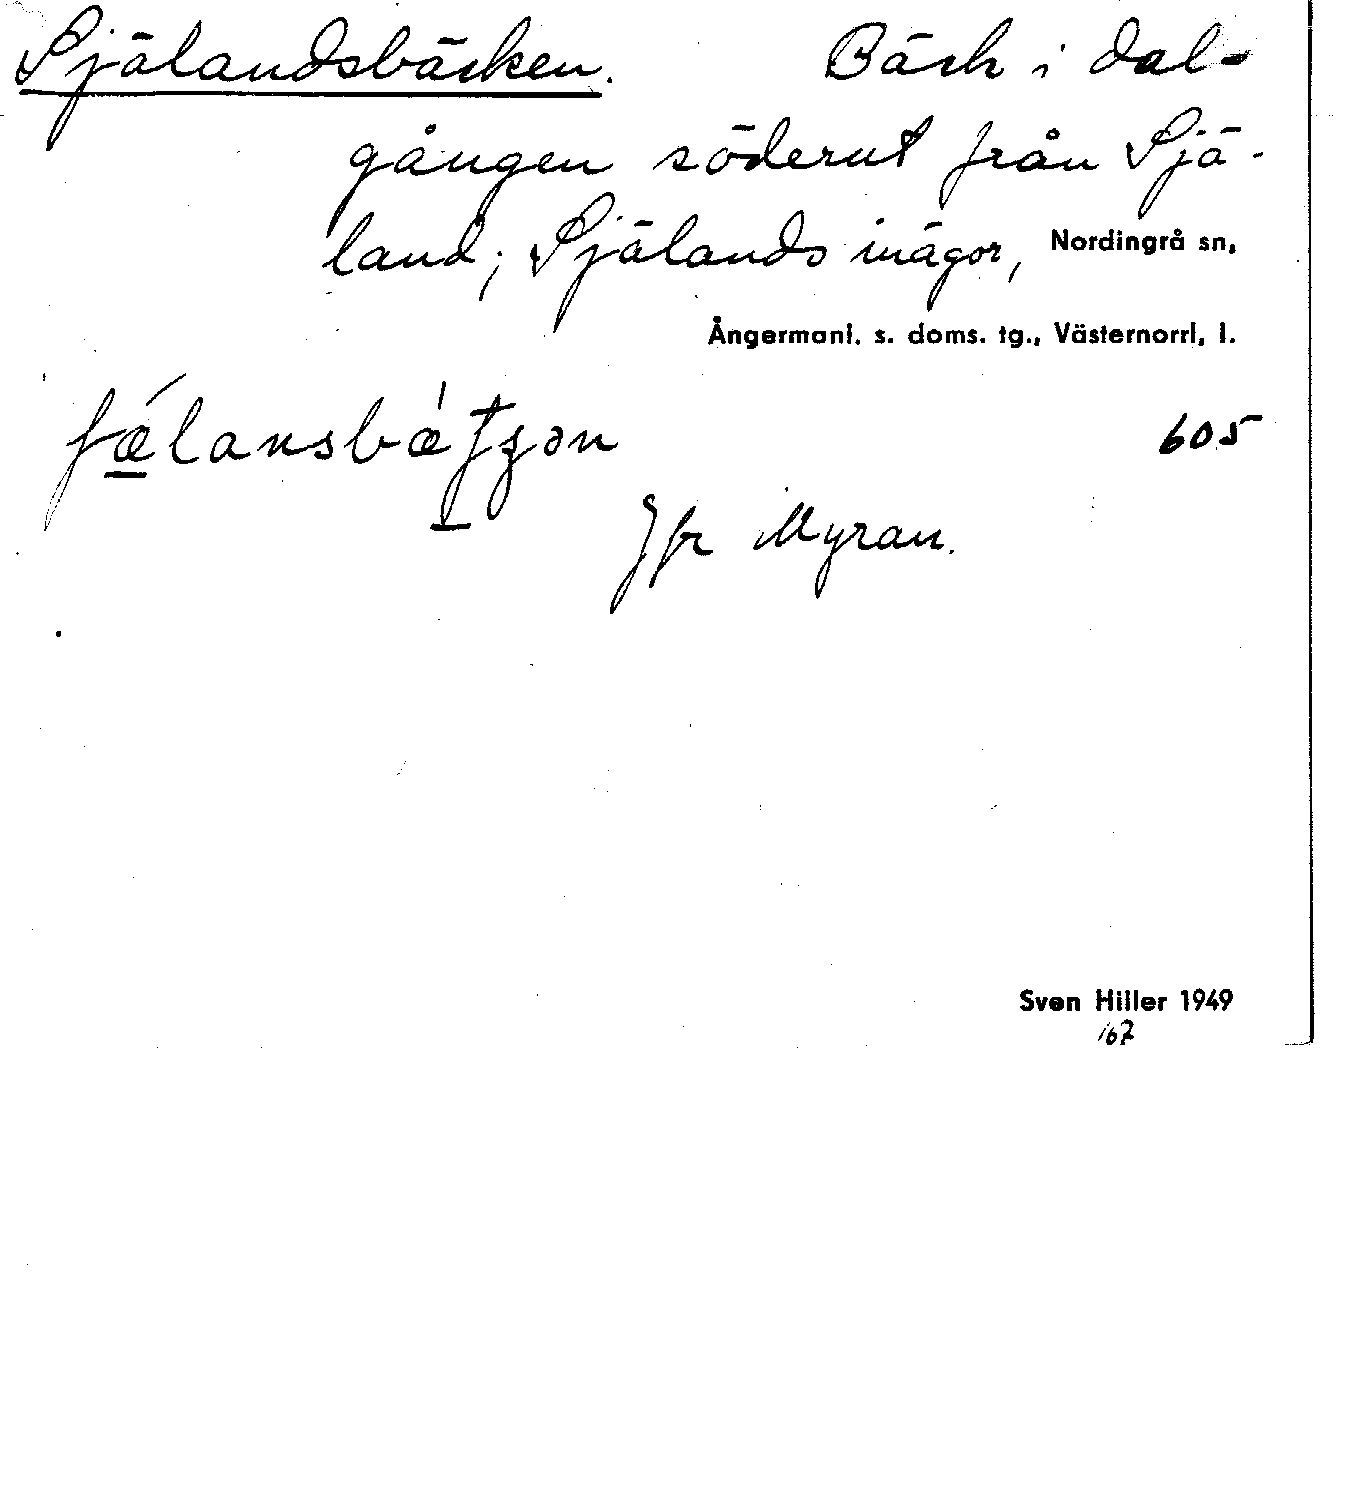 Själandsbäcken. Bäck i dal-
gången söderut från Sjä-
land; Själands inägor, Nordingrå sn,
Ångermanl. s. doms. tg., Västernorrl. l.
605
Jfr Myran.
Sven Hiller 1949
167